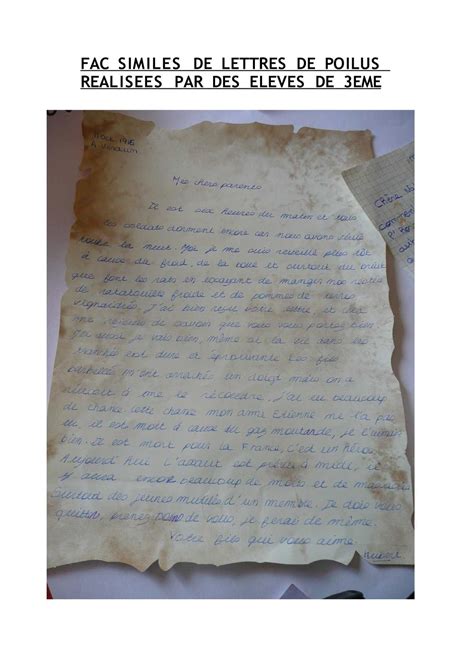 FAC SIMILES DE LETTRES DE POILUS
REALISEES PAR DES ELEVES DE 3EME
A Verdun
Mes chers parents
Il est six heures du matin et tous
les soldats dorment encore car nous avons
toute la nuit. Moi je me suis réveillé plus tôt
à cause du froid, de la boue et surtout du bruit
que font les rats en essayant de manger nos restes
de ratatouilles froide et de pommes de terres
J'ai bien reçu votre lettre et cher
me réjouis de savoir que vous vous portez bien
je vais bien, même si la vie dans les
tranchés est dure et éprouvante. Les fils
barbelés m'ont arrachés un doigt mais on a
réussit à me le recoudre. J'ai eu beaucoup
de chance cette chance mon ami Etienne ne l'a pas
eu, il est mort à cause du gaz moutarde, je l'aimais
bien. Il est mort pour la France, c'est un héros.
Aujourd'hui l'assaut est prévu à midi, il
y aura encore beaucoup de morts et de
des jeunes mutilés d'un membre. Je dois vous
quitter, prenez soin de vous, je ferais de même.
Votre fils qui vous aime.